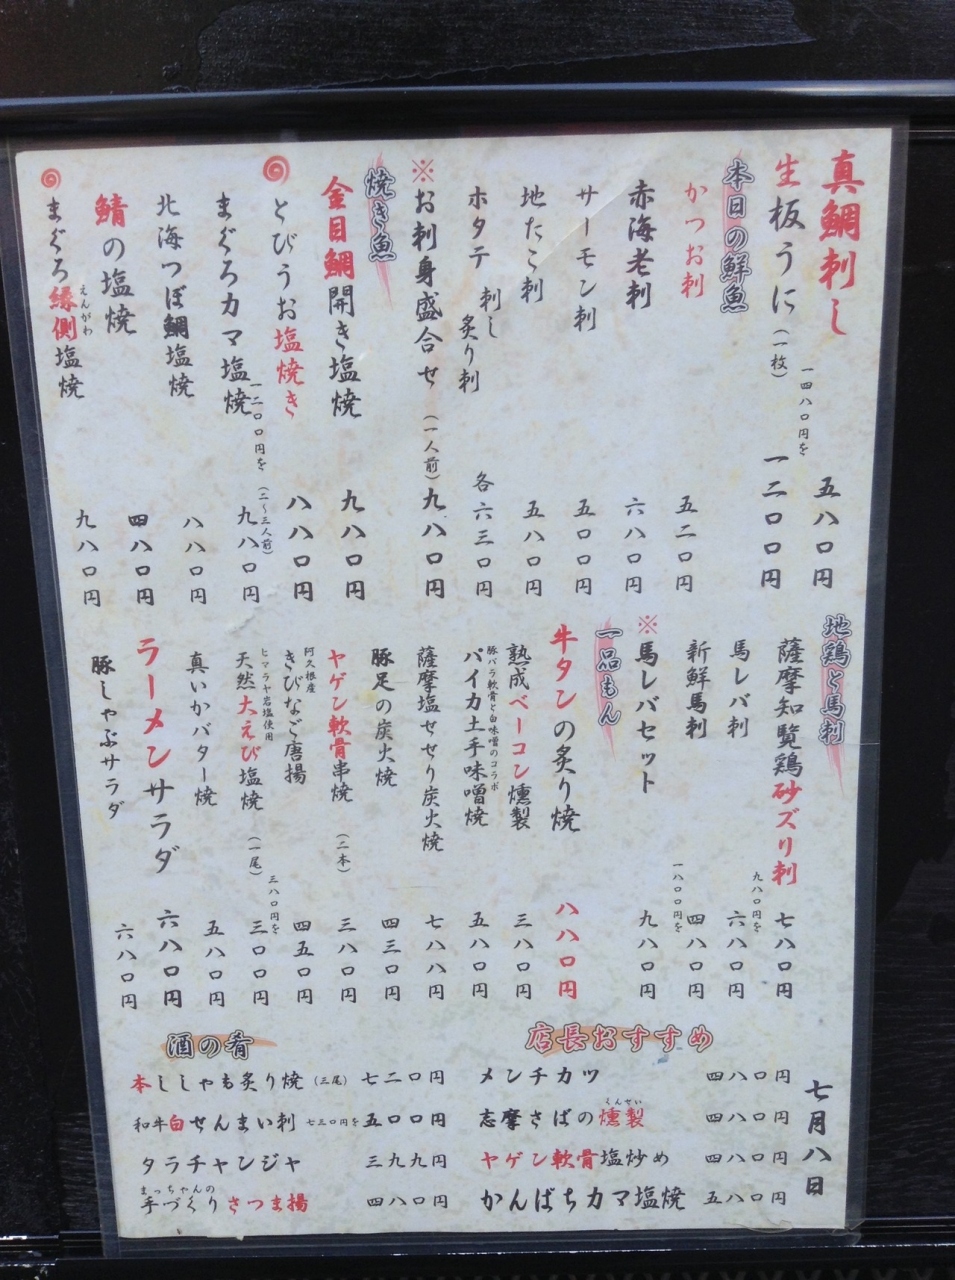 真鯛刺し 五八〇円
生板うに（一枚） 一四八〇円を 一二〇〇円
本日の鮮魚
かつお刺 五二〇円
赤海老刺 六八〇円
サーモン刺 五〇〇円
地たこ刺 五八〇円
ホタテ 刺し 炙り刺 各六三〇円
※お刺身盛合せ（一人前）九八〇円
焼き魚
金目鯛開き塩焼 九八〇円
とびうお塩焼き 八八〇円
まぐろカマ塩焼 一二〇〇円を（二～三人前） 九八〇円
北海つぼ鯛塩焼 八八〇円
鯖の塩焼 四八〇円
まぐろ縁側塩焼 九八〇円
えんがわ
地鶏と馬刺
薩摩知覧鶏砂ズリ刺 七八〇円
馬レバ刺 九八〇円を 六八〇円
新鮮馬刺 四八〇円
※馬レバセット 一八〇〇円を 九八〇円
一品もん
牛タンの炙り焼 八八〇円
熟成ベーコン燻製 三八〇円
豚バラ軟骨と白味噌のコラボ
パイカ土手味噌焼 五八〇円
薩摩塩せせり炭火焼 七八八円
豚足の炭火焼 四三〇円
ヤゲン軟骨串焼（二本） 三八〇円
阿久根産
きびなご唐揚 四五〇円
ヒマラヤ岩塩使用
天然大えび塩焼（一尾） 三八〇円を 三〇〇円
真いかバター焼 五八〇円
ラーメンサラダ 六八〇円
豚しゃぶサラダ 六八〇円
店長おすすめ
メンチカツ 四八〇円
くんせい
志摩さばの燻製 四八〇円
ヤゲン軟骨塩炒め 四八〇円
かんぱちカマ塩焼 五八〇円
酒の肴
本ししゃも炙り焼（三尾） 七二〇円
和牛白せんまい刺 七三〇円を 五〇〇円
タラチャンジャ 三九九円
まっちゃんの
手づくりさつま揚 四八〇円
七月八日